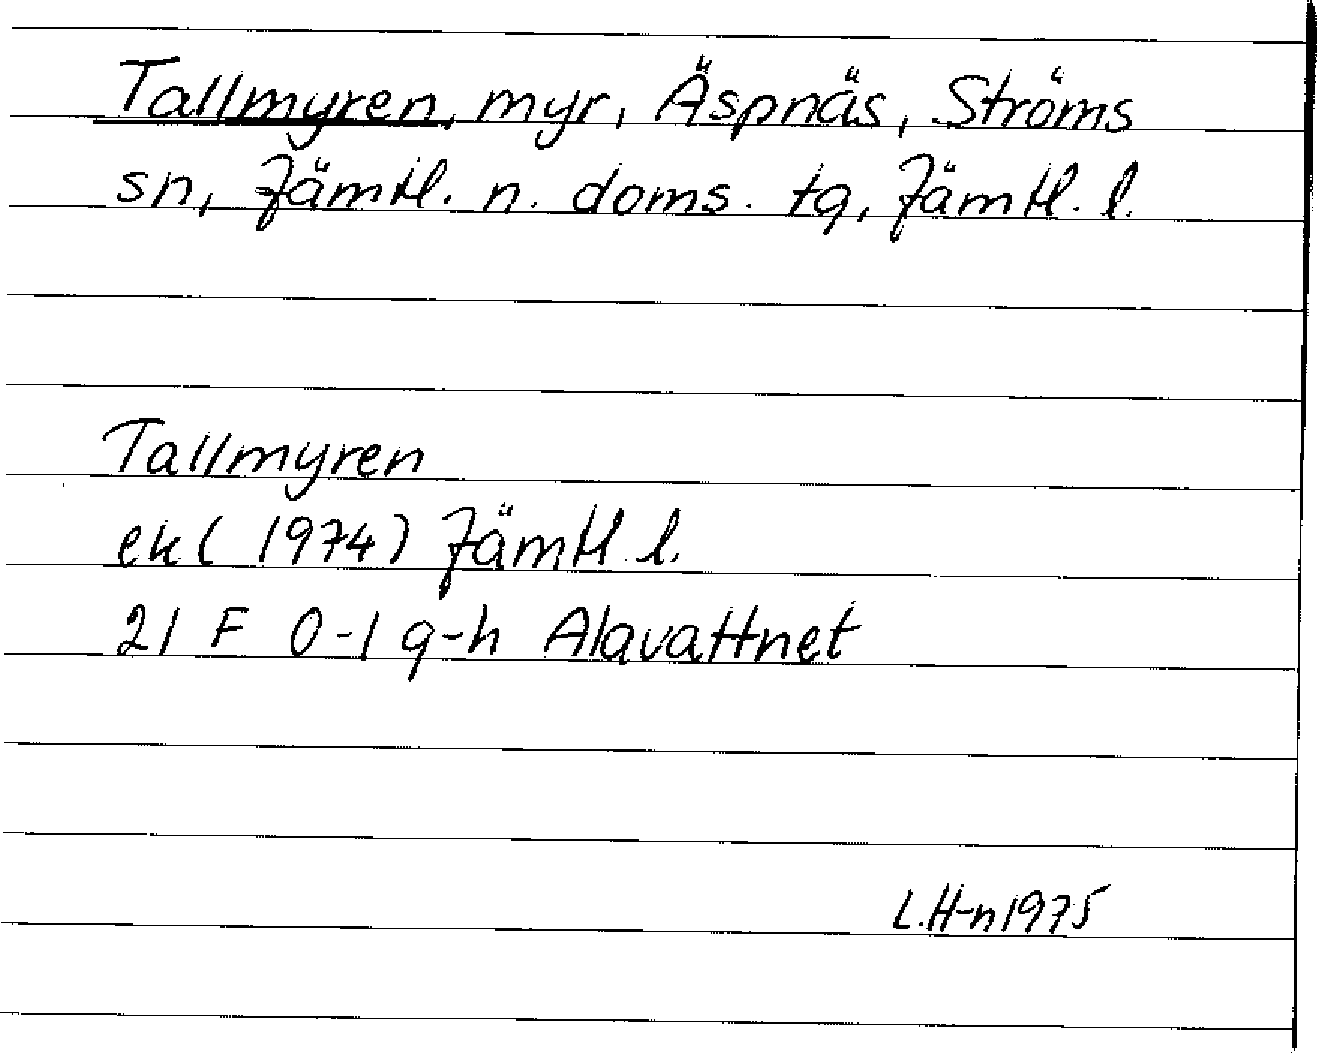 Tallmyren, myr, Äspnäs, Ströms
sn, Jämtl. n. doms. tg, Jämtl. l.
Tallmyren
ek (1974) Jämtl. l.
21 F 0-1 g-h Alavattnet
L.H-n 1975